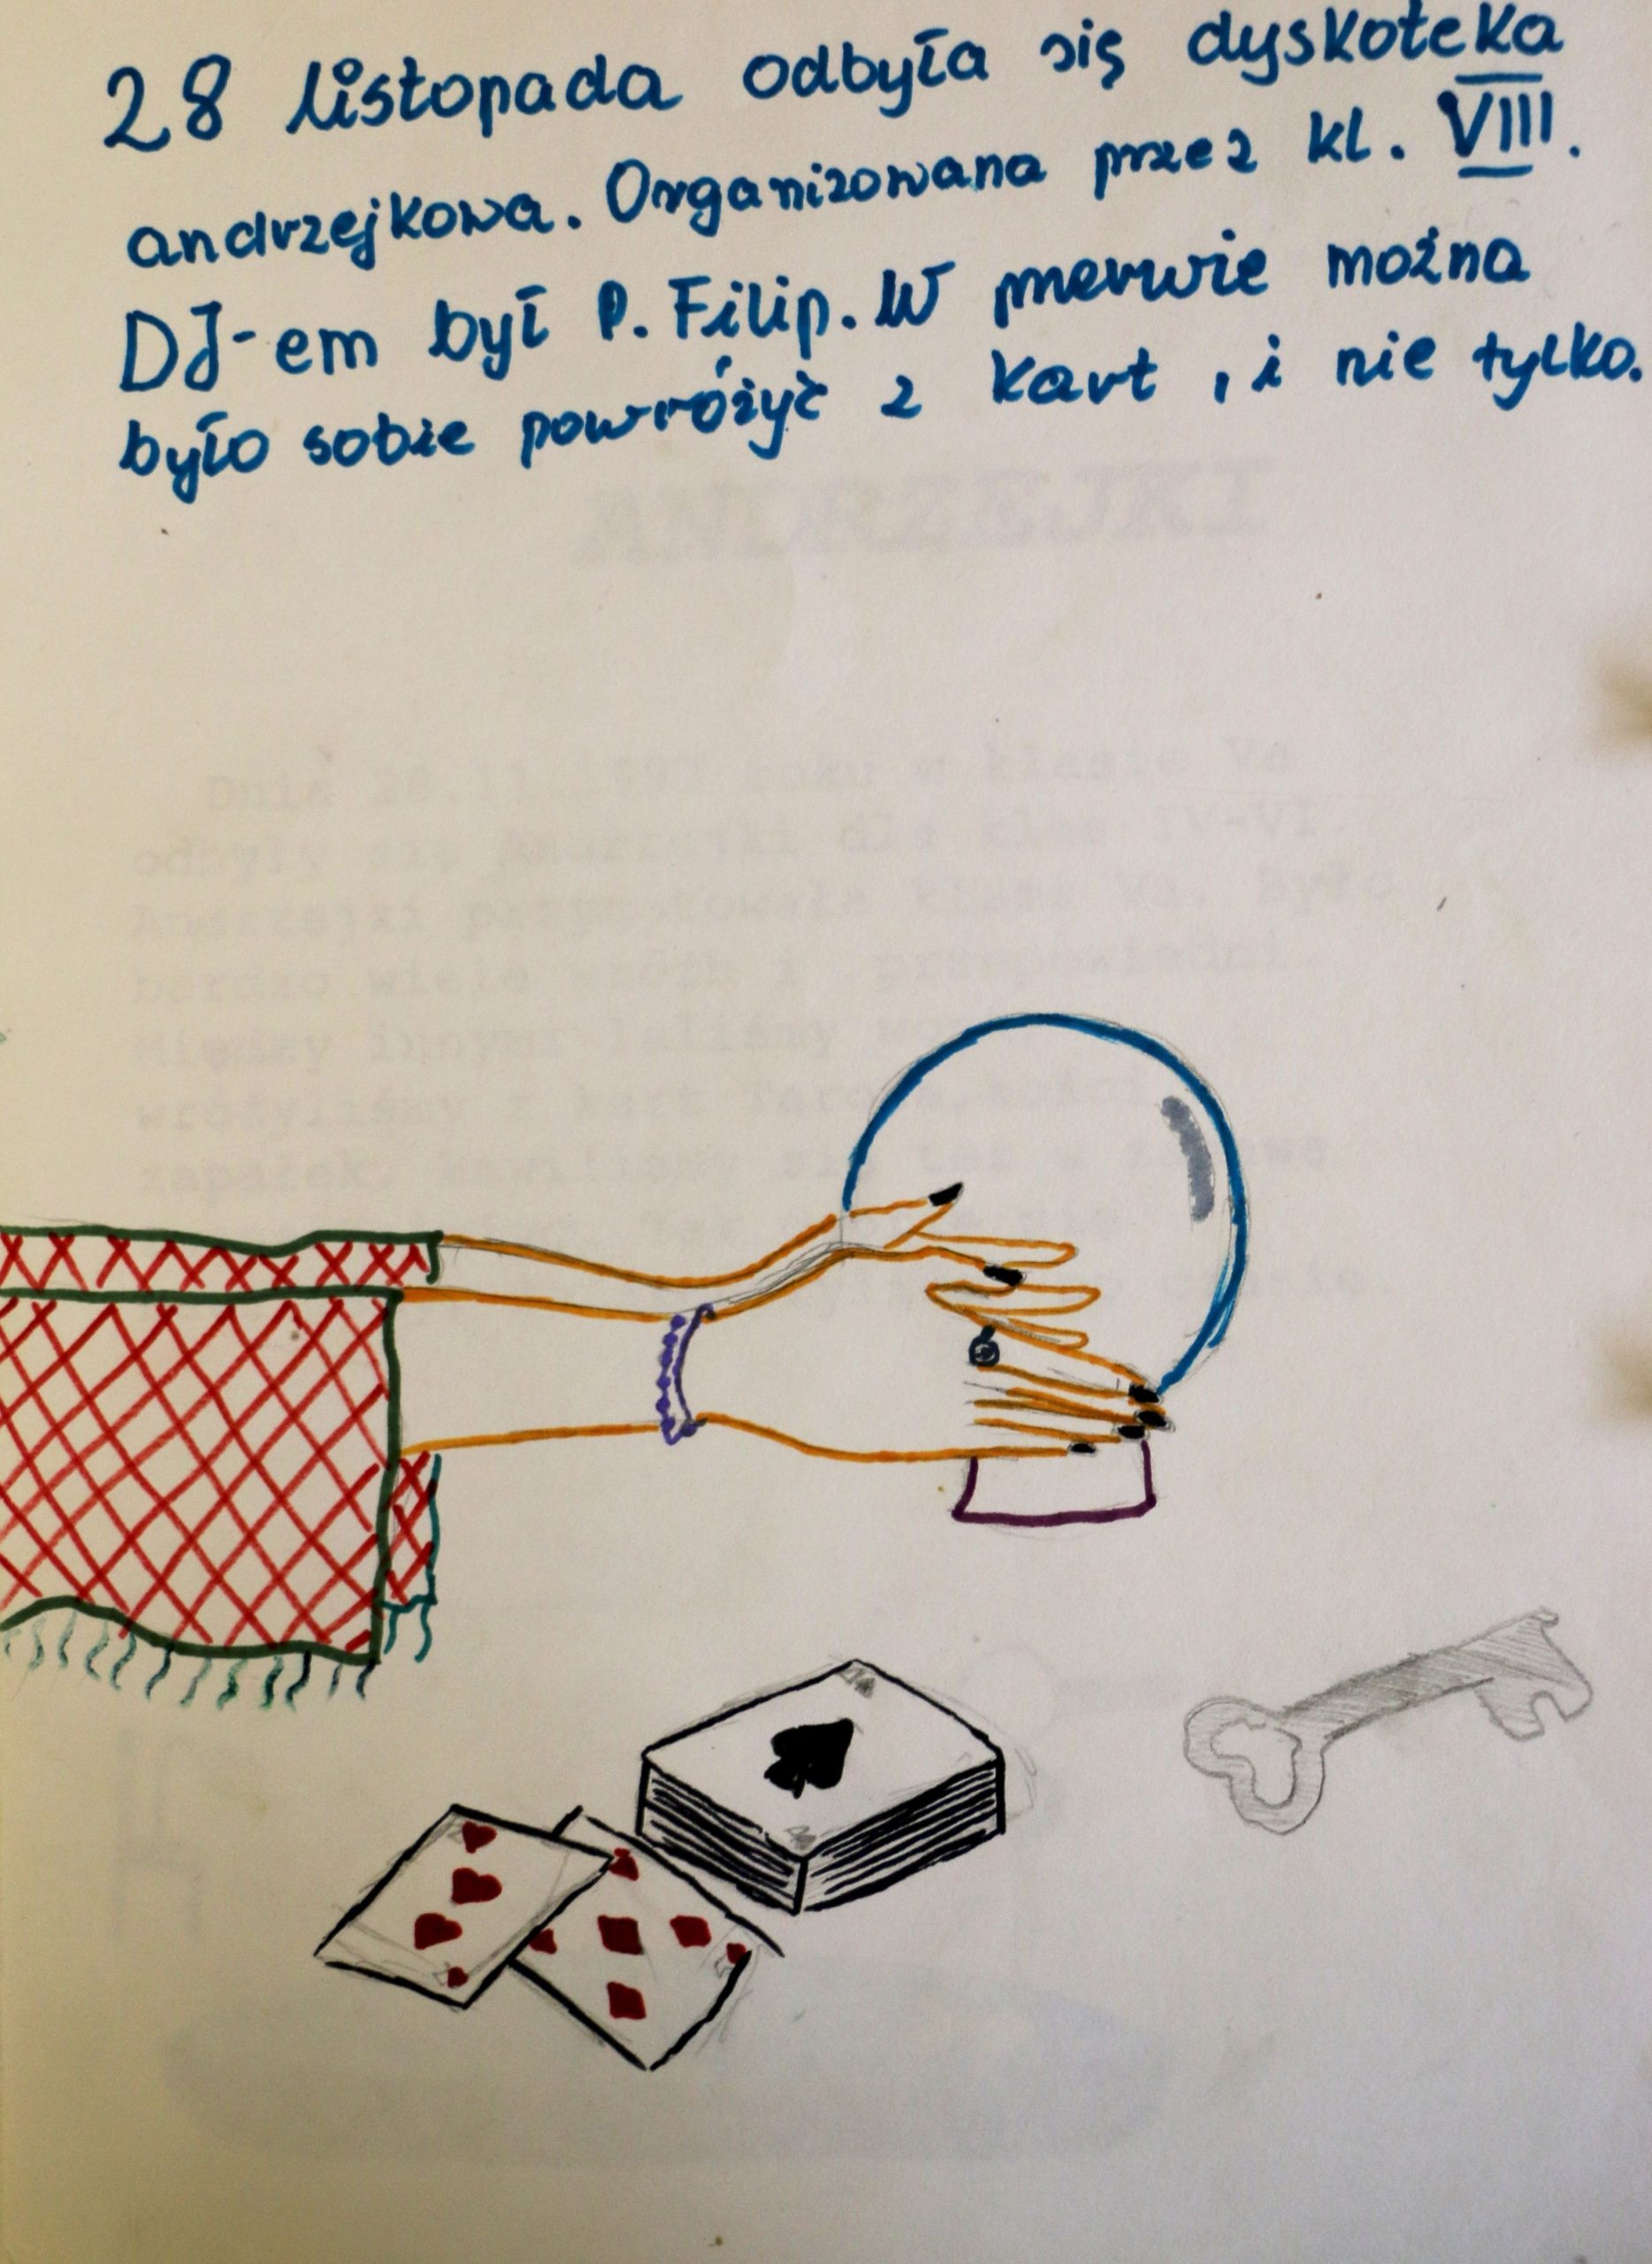 28 listopada odbyła się dyskoteka
andrzejkowa. Organizowana przez kl. VIII.
DJ-em był P. Filip. W przerwie można
było sobie powróżyć z kart, i nie tylko.
ANDRZEJKI
Dnia 28.11.1997 roku w klasie Va
odbyły się Andrzejki dla klas IV-VI
Andrzejki przygotowała klasa Va. Było
bardzo wiele wróżb i przepowiedni.
Między innymi laliśmy
wróżyliśmy z kart Tarota,
zapałek.